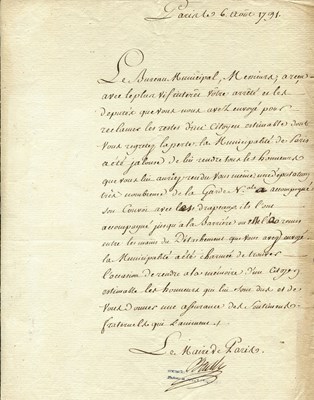 Paris le 6 Aout 1791.
Le Bureau Municipal, Messieurs, a reçu
avec le plus vif intérêt votre arrêté et les
députés que vous avez envoyé pour
reclamer les restes d'un Citoyen estimable dont
vous regretez la perte. La Municipalité de Paris
a été jalouse de lui rendre tous les honneurs
que vous lui auriez rendu vous même; une députation
très nombreuse de la Garde N.ale a accompagné
son Convoi avec les drapeaux; ils l'ont
accompagné jusqu'à la Barrière où elle l'a remis
entre les mains du Détachement que vous avez envoyé.
La Municipalité a été charmée de trouver
l'occasion de rendre à la mémoire d'un Citoyen
estimable les honneurs qui lui sont dus et de
vous donner une assurance des Sentimens
fraternels qui l'animent.
Le Maire de Paris.
Bailly